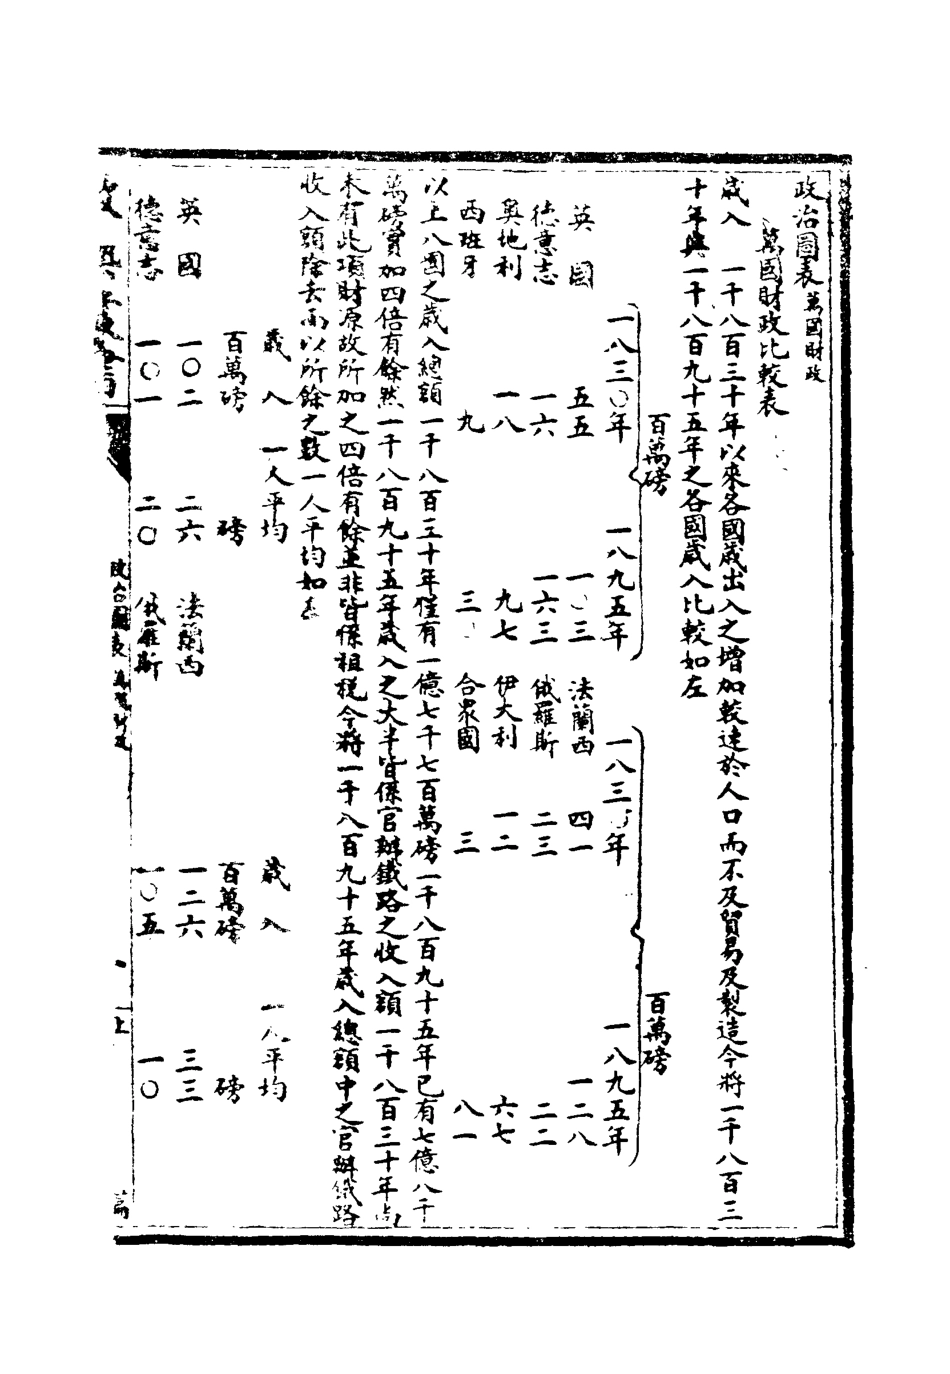 政治圖表 萬國財政
萬國財政比較表
歲入 一千八百三十年以來各國歲出入之增加較速於人口而不及貿易及製造今將一千八百三
十年與一千八百九十五年之各國歲入比較如左
百萬磅 百萬磅
一八三〇年 一八九五年 一八三 年 一八九五年
英國 五五 一 三 法蘭西 四一 一二八
德意志 一六 一六三 俄羅斯 二三 二二
奧地利 一八 九七 伊大利 一二 六七
西班牙 九 三 合眾國 三 八一
以上八國之歲入總額一千八百三十年僅有一億七千七百萬磅一千八百九十五年已有七億八千
萬磅實加四倍有餘然一千八百九十五年歲入之大半皆係官辦鐵路之收入額一千八百三十年尚
未有此項財源故所加之四倍有餘並非皆係租稅今將一千八百九十五年歲入總額中之官辦鐵路
收入額除去而以所餘之數一人平均如左
歲入 一人平均 歲入 一人平均
百萬磅 磅 百萬磅 磅
英國 一〇二 二六 法蘭西 一二六 三三
德意志 一〇一 二〇 俄羅斯 一〇五 一〇
政治圖表 萬國財政